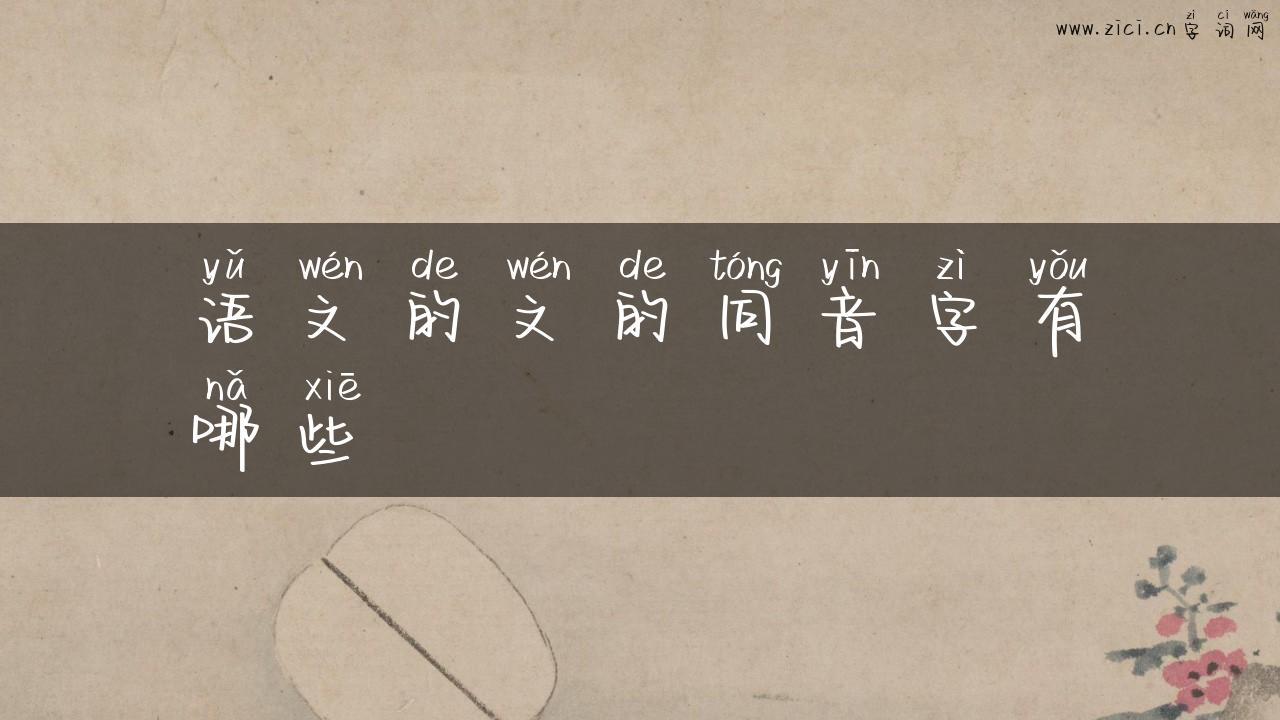 zì cí wǎng
www.zici.cn字词网
yǔ wén de wén de tóng yīn zì yǒu
语文的文的同音字有
nǎ xiē
哪些